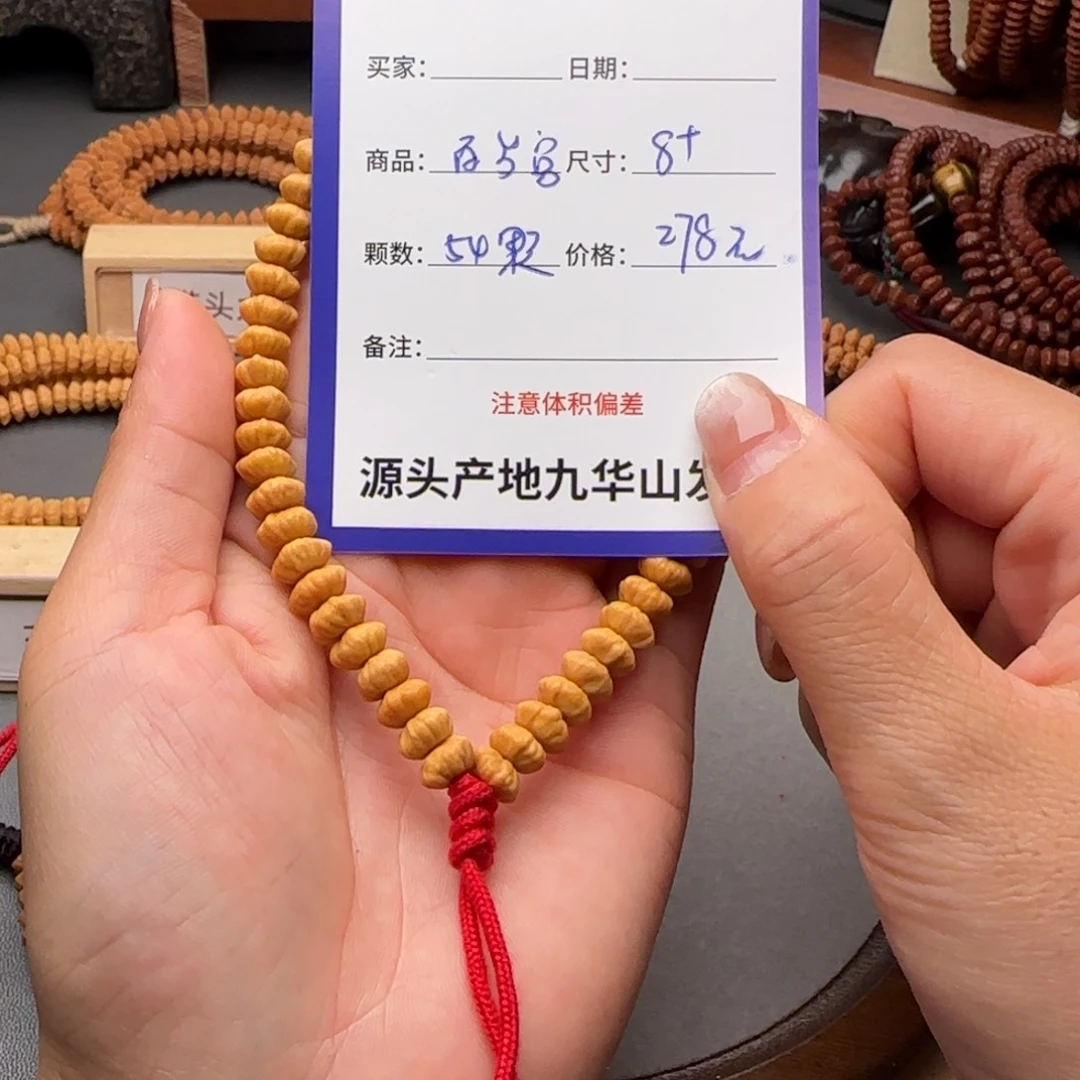 买家: 日期:
商品: 百岁宫 尺寸: 8+
颗数: 54颗 价格: 278元
备注:
注意体积偏差
源头产地九华山发
头